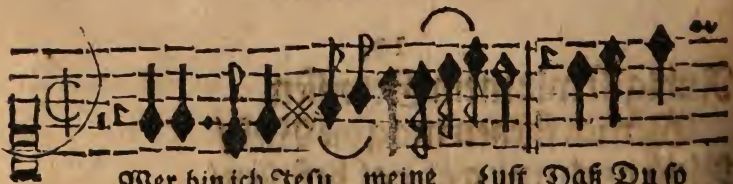 Wer bin ich Jesu meine Lust Daß Du so